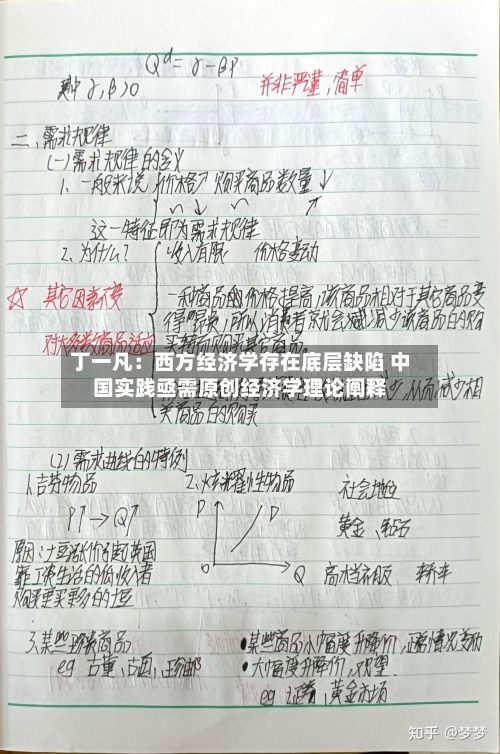 Qᵈ = γ − βP
其中 γ, β > 0
并非严谨,简单
二、需求规律
(一)需求规律的含义
1、一般来说 价格↗ 购买商品数量↓
〃 ↘ 〃 ↗
这一特征即为需求规律
2、为什么?
收入有限 价格变动
☆ 其它因素不变
对大多数商品适应
一种商品的价格提高,该商品相对于其它商品变
得"昂贵",所以消费者就会减少该商品的购
买转而购买其它商品。
丁一凡:西方经济学存在底层缺陷 中
国实践亟需原创经济学理论阐释
减少,从而减少相
类商品的购买
(2)需求曲线的特例
1、吉芬物品
P↑→Q↑
原因:土豆涨价引起英国
靠工资生活的低收入者
购买更多的土豆
2、炫耀性物品
P
D
O
Q
社会地位
黄金、钻石
高档衣服 轿车
3、某些珍贵商品
eg 古董,古画,正邮
•某些商品小幅度升降价,正常情况变动
•大幅度升降价,观望.
eg 证券,黄金市场
知乎 @梦梦